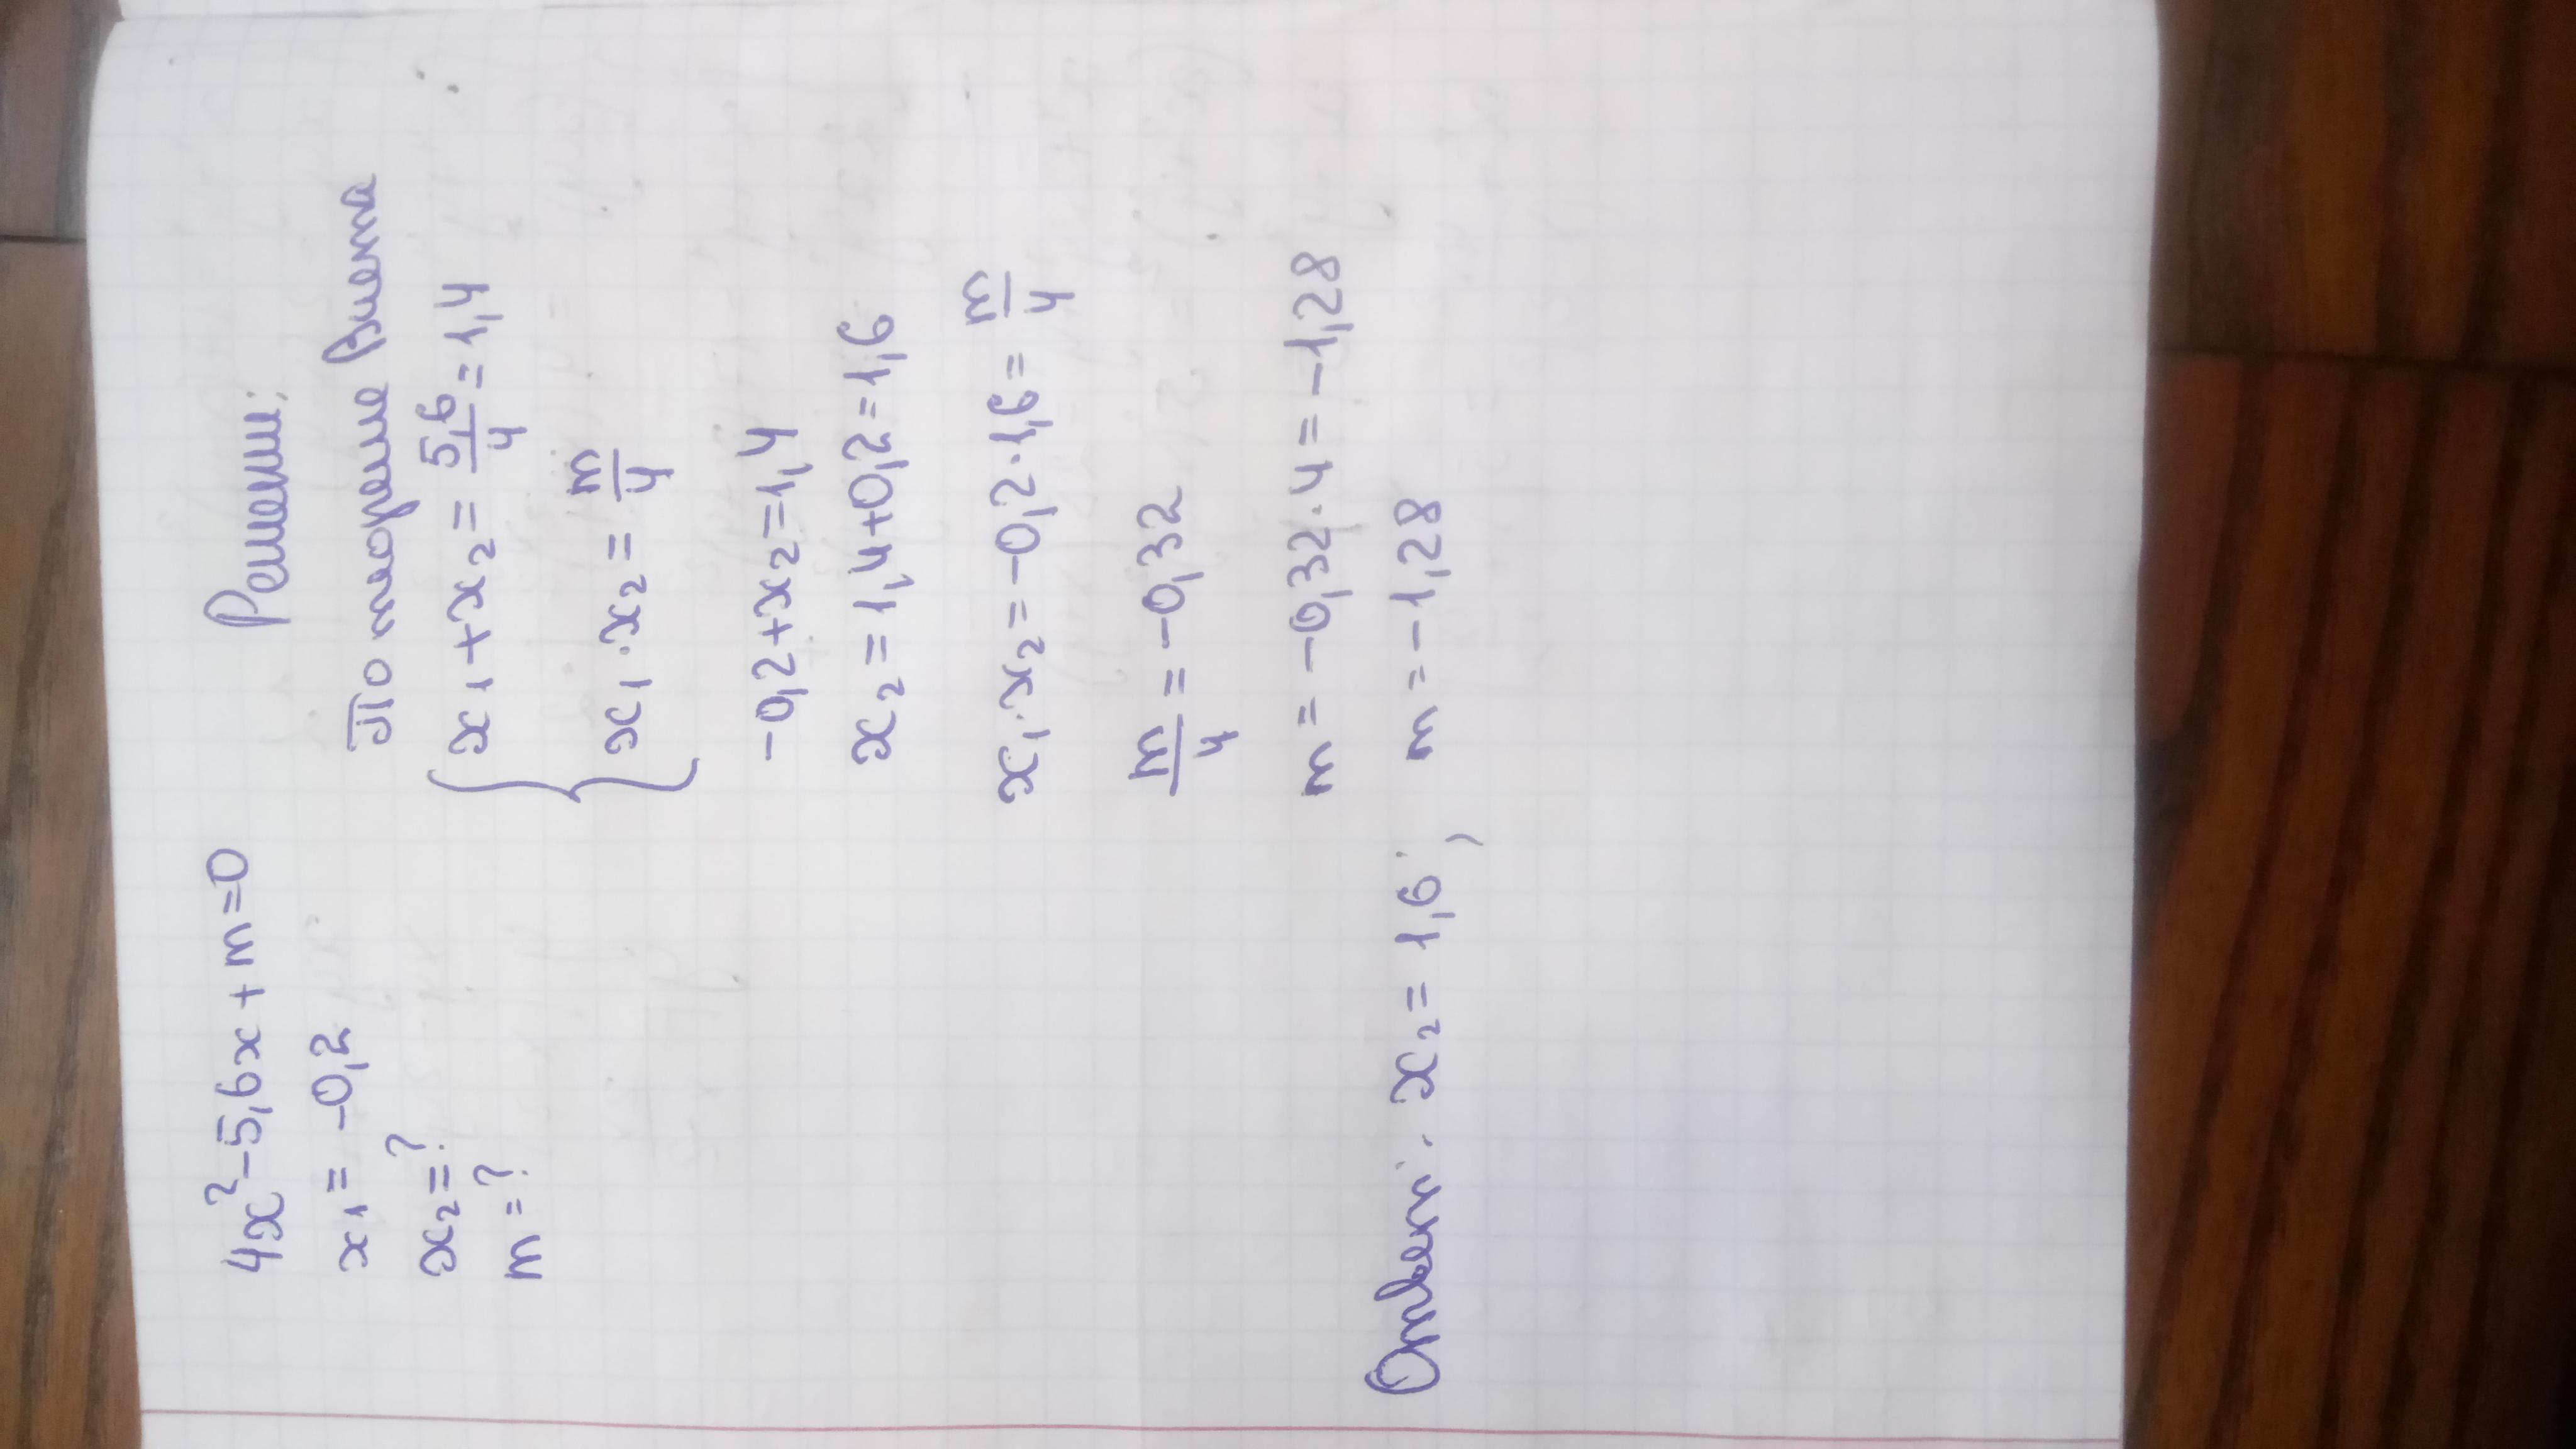 4x²-5,6x+m=0
x₁=-0,2
x₂=?
m=?
Решени:
По теореме Виета
{x₁+x₂=5,6/4=1,4
x₁·x₂=m/4
-0,2+x₂=1,4
x₂=1,4+0,2=1,6
x₁·x₂=-0,2·1,6=m/4
m/4=-0,32
m=-0,32·4=-1,28
Ответ: x₂=1,6; m=-1,28